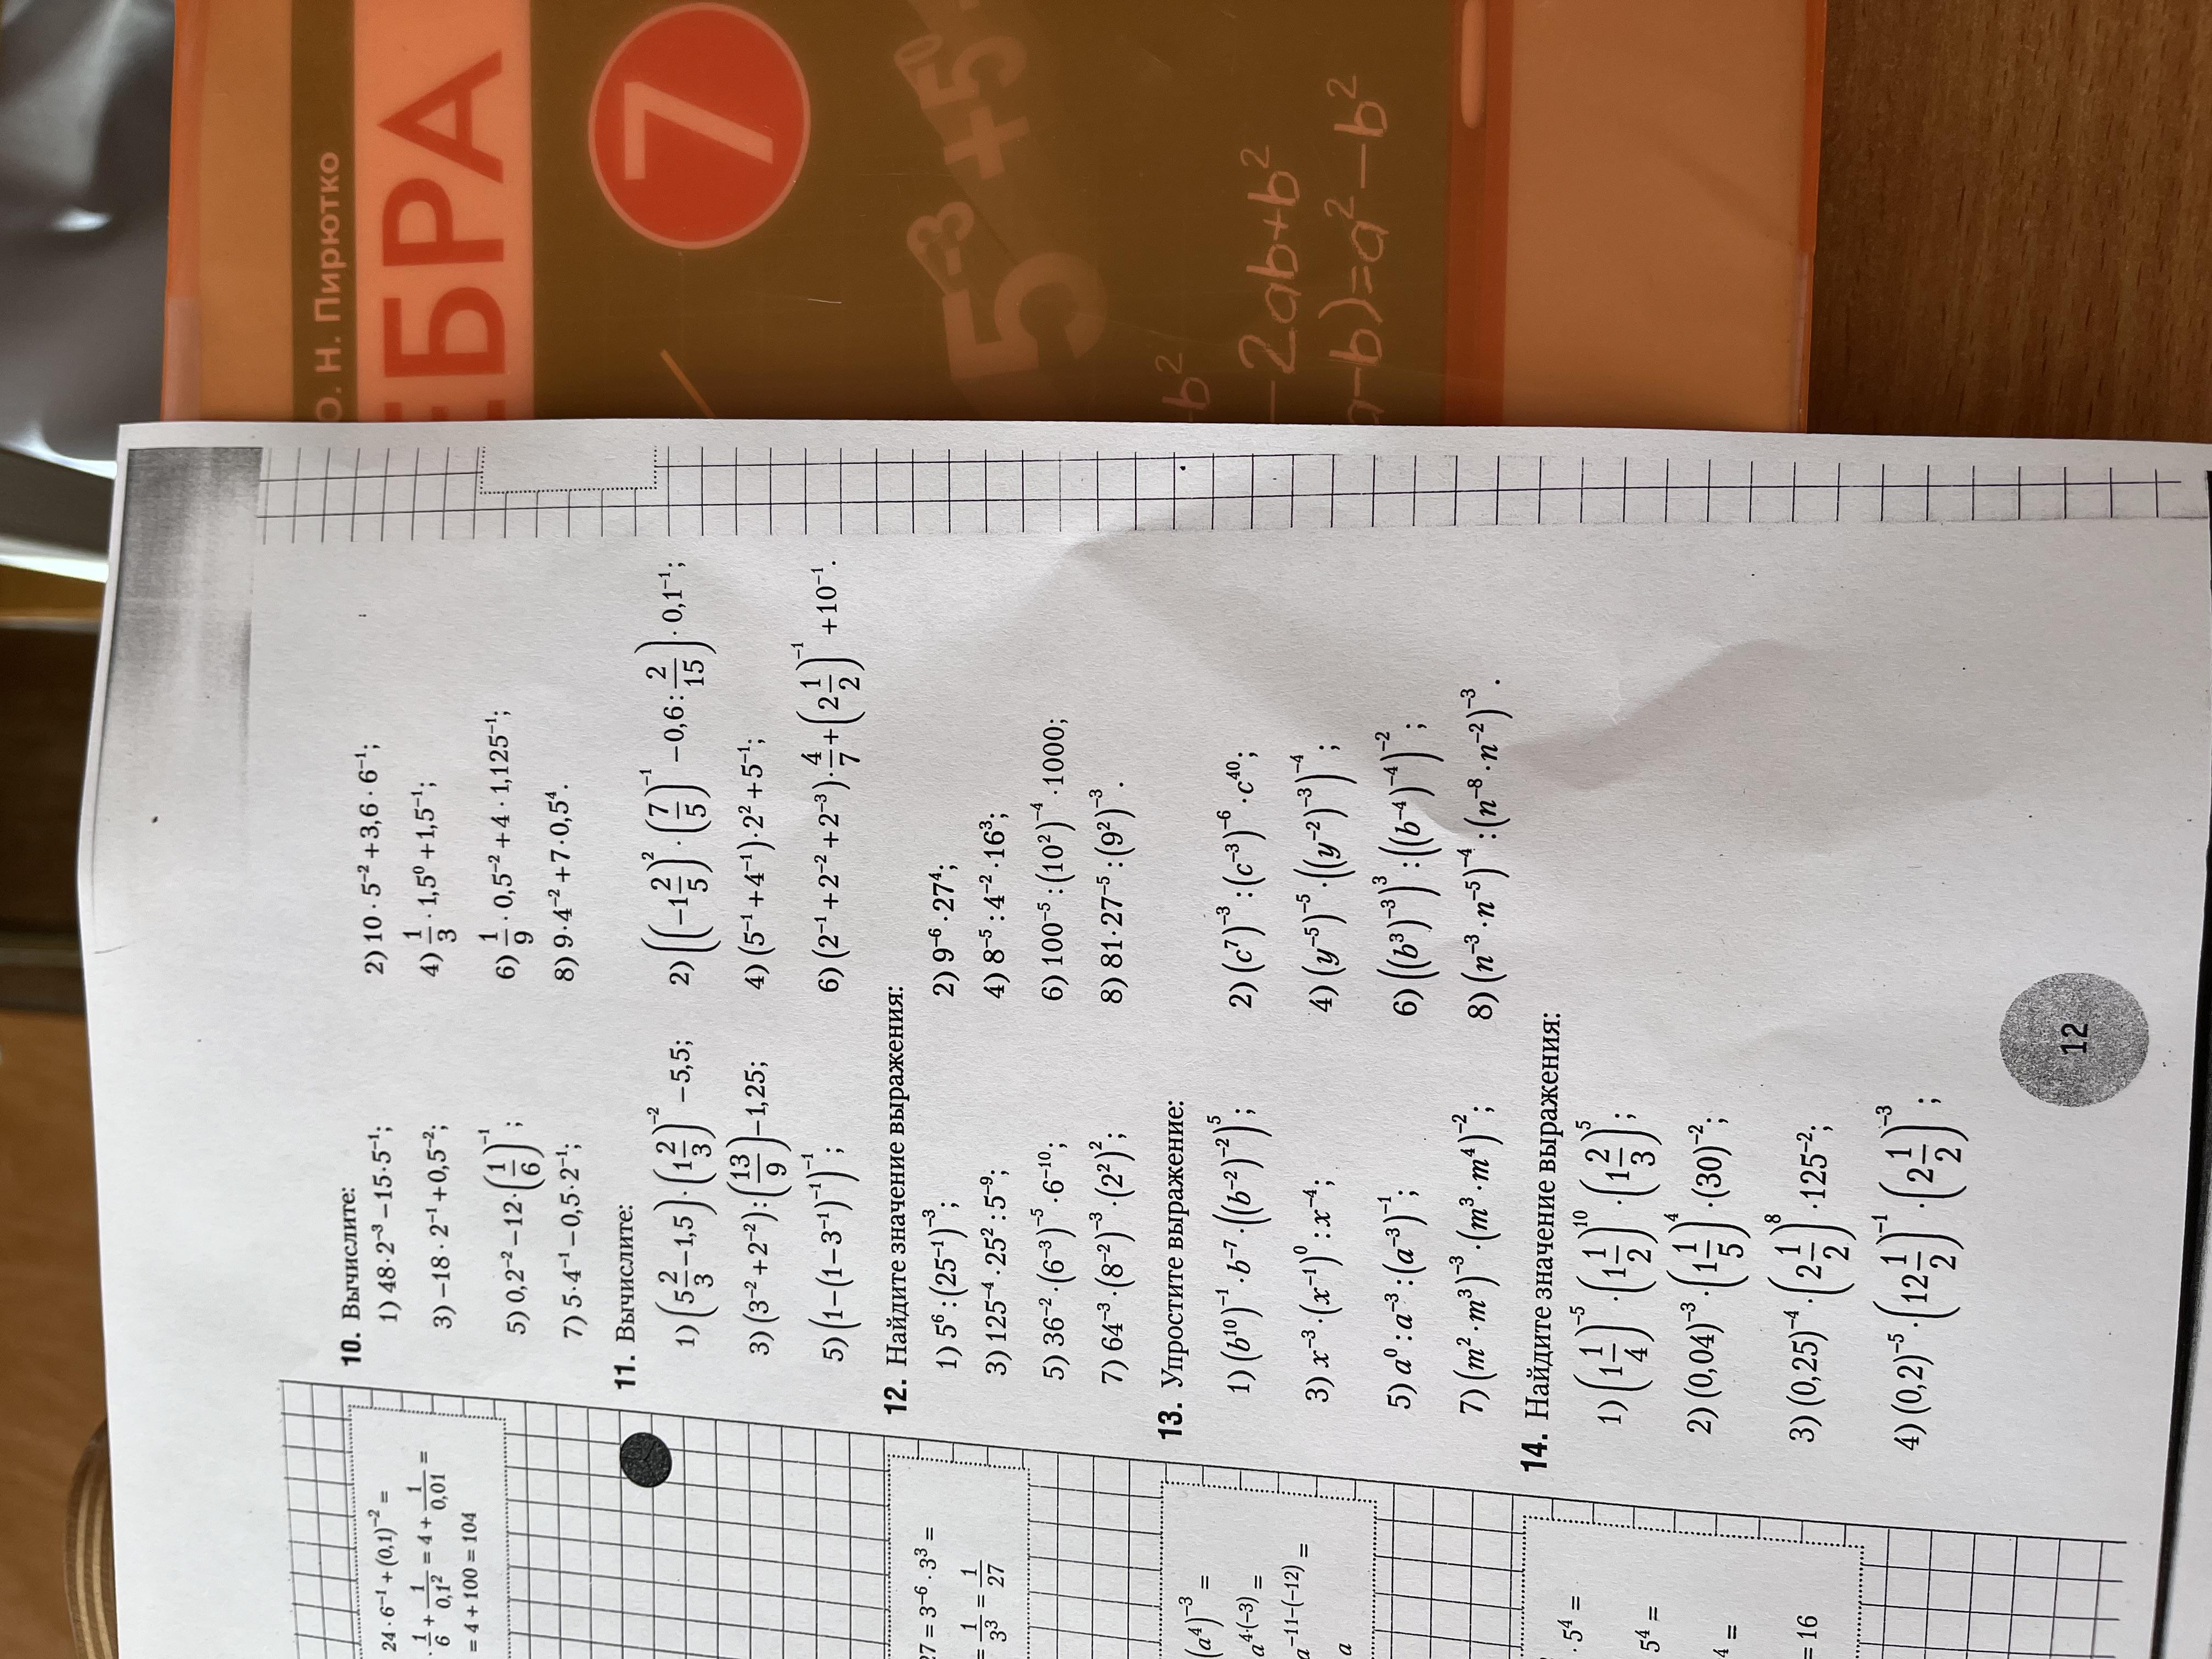 О. Н. Пирютко
ЕБРА
7
5⁻³+5⁰
b²
−2ab+b²
a−b)=a²−b²
24·6⁻¹+(0,1)⁻²=
·1/6+1/0,1²=4+1/0,01=
=4+100=104
27=3⁻⁶·3³=
=1/3³=1/27
(a⁴)⁻³=
a⁴·⁽⁻³⁾=
a⁻¹¹⁻⁽⁻¹²⁾=
a
·5⁴=
5⁴=
⁴=
=16
10. Вычислите:
1) 48·2⁻³−15·5⁻¹; 2) 10·5⁻²+3,6·6⁻¹;
3) −18·2⁻¹+0,5⁻²; 4) 1/3·1,5⁰+1,5⁻¹;
5) 0,2⁻²−12·(1/6)⁻¹; 6) 1/9·0,5⁻²+4·1,125⁻¹;
7) 5·4⁻¹−0,5·2⁻¹; 8) 9·4⁻²+7·0,5⁴.
11. Вычислите:
1) (5 2/3−1,5)·(1 2/3)⁻²−5,5; 2) ((−1 2/5)²·(7/5)⁻¹−0,6:2/15)·0,1⁻¹;
3) (3⁻²+2⁻²):(13/9)−1,25; 4) (5⁻¹+4⁻¹)·2²+5⁻¹;
5) (1−(1−3⁻¹)⁻¹)⁻¹; 6) (2⁻¹+2⁻²+2⁻³)·4/7+(2 1/2)⁻¹+10⁻¹.
12. Найдите значение выражения:
1) 5⁶:(25⁻¹)⁻³; 2) 9⁻⁶·27⁴;
3) 125⁻⁴·25²:5⁻⁹; 4) 8⁻⁵:4⁻²·16³;
5) 36⁻²·(6⁻³)⁻⁵·6⁻¹⁰; 6) 100⁻⁵:(10²)⁻⁴·1000;
7) 64⁻³·(8⁻²)⁻³·(2²)²; 8) 81·27⁻⁵:(9²)⁻³.
13. Упростите выражение:
1) (b¹⁰)⁻¹·b⁻⁷·((b⁻²)⁻²)⁵; 2) (c⁷)⁻³:(c⁻³)⁻⁶·c⁴⁰;
3) x⁻³·(x⁻¹)⁰:x⁻⁴; 4) (y⁻⁵)⁻⁵·((y⁻²)⁻³)⁻⁴;
5) a⁰:a⁻³:(a⁻³)⁻¹; 6) ((b³)⁻³)³:((b⁻⁴)⁻⁴)⁻²;
7) (m²·m³)⁻³·(m³·m⁴)⁻²; 8) (n⁻³·n⁻⁵)⁻⁴:(n⁻⁸·n⁻²)⁻³.
14. Найдите значение выражения:
1) (1 1/4)⁻⁵·(1 1/2)¹⁰·(1 2/3)⁵;
2) (0,04)⁻³·(1 1/5)⁴·(30)⁻²;
3) (0,25)⁻⁴·(2 1/2)⁸·125⁻²;
4) (0,2)⁻⁵·(12 1/2)⁻¹·(2 1/2)⁻³;
12